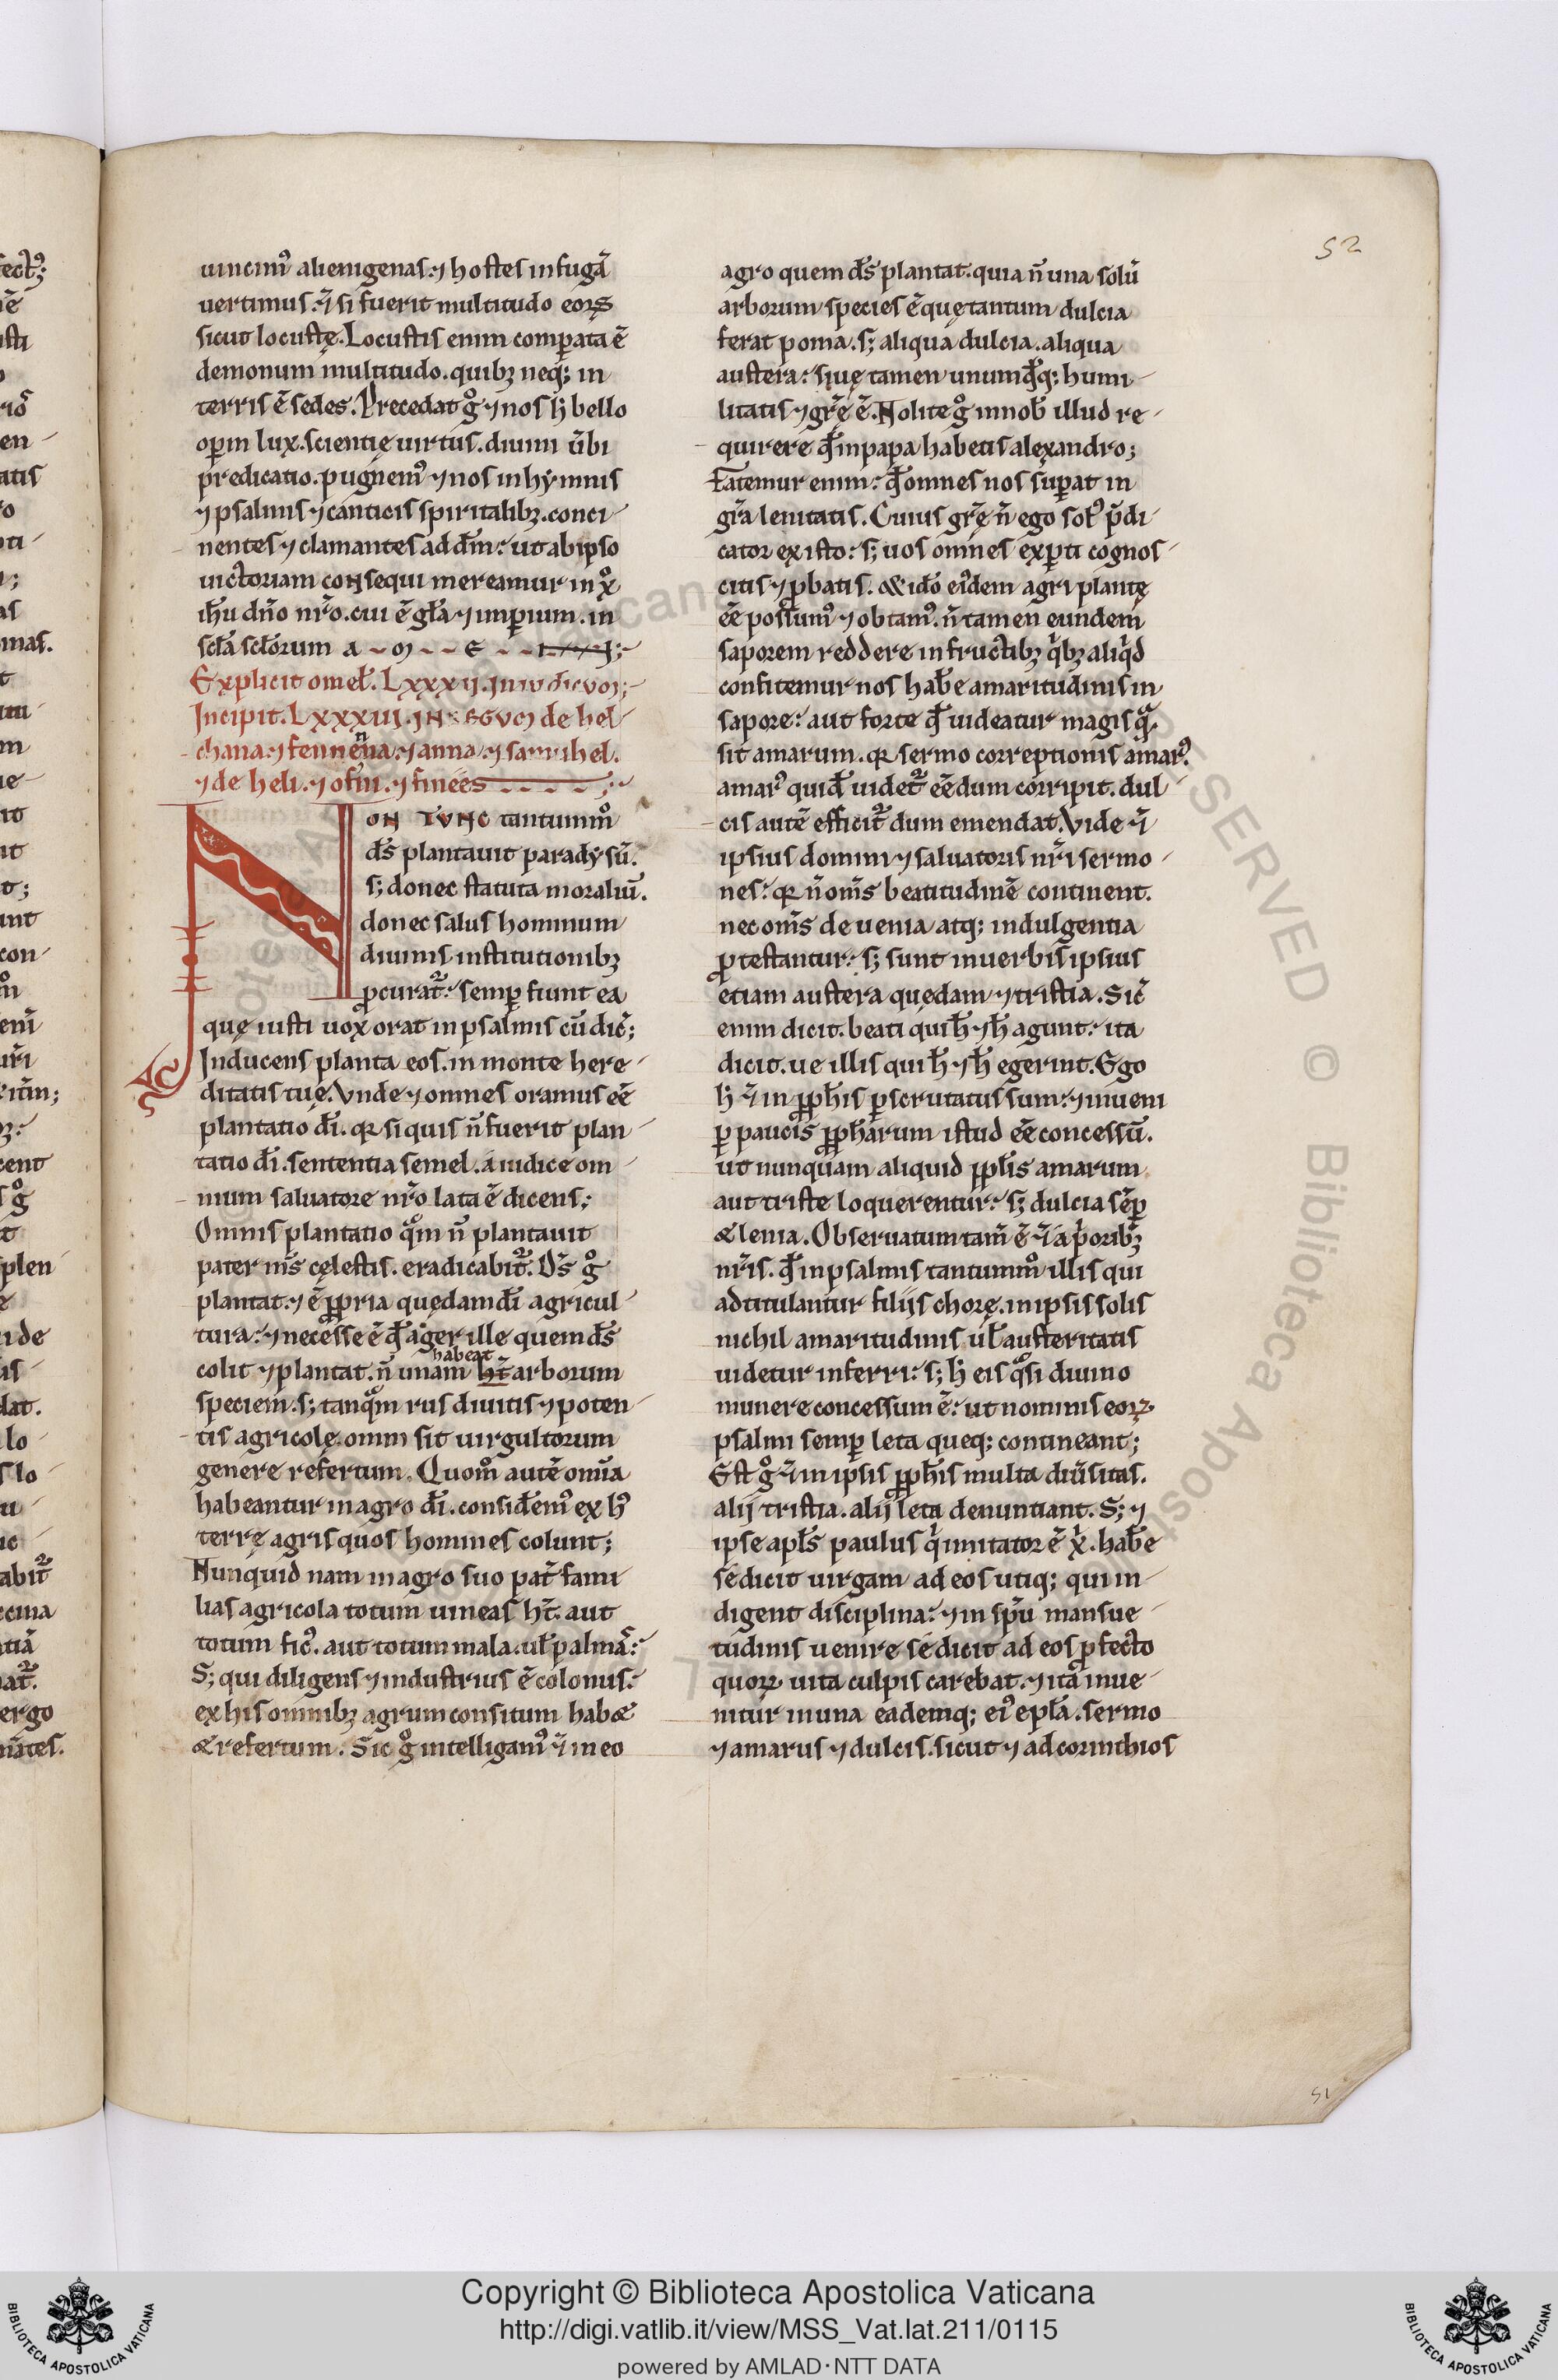 52
uincim᷒ alienigenas. ⁊ hostes in fugā
uertimus. ⁊̄ si fuerit multitudo eoꝝ
sicut locustę. Locustis enim comꝑata ē
demonum multitudo. quibꝫ neq; in
terris ē sedes. Precedat gͦ ⁊ nos h̵ bello
oꝑm lux. scientię uirtus. diuini ūbi
predicatio. pugnem᷒ ⁊ nos in hymnis
⁊ psalmis ⁊ canticis spiritalibꝫ. conci-
nentes ⁊ clamantes ad dm̄: ut ab ipso
uictoriam consequi mereamur in xͦ
ihu̅ dn̄o nr̄o. cui ē gl̄a ⁊ imꝑium. in
scl̄a scl̄orum a - m - - e - - n;
Explicit omel̄. Lxxxii. in iudicum;
Incipit. Lxxxiii. in regum de hel-
chana. ⁊ fennenna. ⁊ anna. ⁊ samuhel.
⁊ de heli. ⁊ ofni. ⁊ finees
NON TUNC tantummͦ
ds̄ plantauit paradysū.
s; donec statuta moraliū.
donec salus hominum
diuinis institutionibꝫ
ꝓcurat᷑: semꝑ fiunt ea
quę iusti uox orat in psalmis cū dic̄;
Inducens planta eos. in monte here-
ditatis tuę. Vnde ⁊ omnes oramus eē
plantatio dī. qr si quis n̄ fuerit plan-
tatio dī. sententia semel. a iudice om-
nium saluatore nr̄o lata ē dicens;
Omnis plantatio qͣm n̄ plantauit
pater ms̄ cęlestis. eradicabit᷑. Ds̄ gͦ
plantat. ⁊ ē ꝓpria quędam dī agricul-
tura: ⁊ necesse ē qd̄ ager ille quem ds̄
habeat
colit ⁊ plantat. n̄ unam ht̄ arborum
speciem. s; tanqͣm rus diuitis ⁊ poten-
tis agricolę. omni sit uirgultorum
genere refertum. Quomͦ autē om̄a
habeantur in agro dī. considem᷒ ex h᷒
terrę agris quos homines colunt;
Nunquid nam in agro suo pat̄ fami-
lias agricola totum uineas ht̄. aut
totum fic᷒. aut totum mala. ul̄ palmā:
S; qui diligens ⁊ industrius ē colonus:
ex his omnibꝫ agrum consitum habꝫ
& refertum. Sic gͦ intelligam᷒ ⁊̄ in eo
agro quem ds̄ plantat. quia n̄ una solū
arborum species ē quę tantum dulcia
ferat poma. s; aliqua dulcia. aliqua
austera: siuę tamen unumqd̄q; humi-
litatis ⁊ grę̄ ē. Nolite gͦ in nob̄ illud re-
quirere qd̄ in papa habetis alexandro;
Fatemur enim: qd̄ omnes nos suꝑat in
gr̄a lenitatis. Cuius grę̄ n̄ ego sol᷒ p̄di-
cator existo: s; uos omnes exꝑti cognos-
citis ⁊ ꝓbatis. & ido̅ ei᷒dem agri plantę
eē possum᷒ ⁊ obtam᷒. n̄ tamen eundem
saporem reddere in fructibꝫ qͥbꝫ aliqͥd
confitemur nos hab̄e amaritudinis in
sapore: aut forte qd̄ uideatur magis qͣ
sit amarum. qr sermo correptionis amar᷒.
amar᷒ quid̄ uidet᷑ eē dum corripit. dul-
cis autē efficit᷑ dum emendat. Vide ⁊̄
ipsius domini ⁊ saluatoris nr̄i sermo-
nes: qr n̄ om̄s beatitudinē continent.
nec om̄s de uenia atq; indulgentia
ꝓtestantur: s; sunt in uerbis ipsius
etiam austera quędam ⁊ tristia. Sic̄
enim dicit. beati qui h̵ ⁊ h̵ agunt: ita
dicit. ue illis qui h̵ ⁊ h̵ egerint. Ego
h̵ ⁊̄ in ꝓph̄is ꝑscrutatus sum: ⁊ inueni
ꝑ paucis ꝓph̄arum istud eē concessū.
ut nunquam aliquid ꝓph̄s amarum
aut triste loquerentur: s; dulcia sēꝑ
& lenia. Obseruatum tam̄ ē ⁊̄ a pͥoribꝫ
nr̄is. qd̄ in psalmis tantummͦ illis qui
adtitulantur filijs chorę. in ipsis solis
nichil amaritudinis ul̄ austeritatis
uidetur inferri: s; h̵ eis qͣsi diuino
munere concessum ē: ut nominis eoꝝ
psalmi semꝑ leta queq; contineant;
Est gͦ ⁊̄ in ipsis ꝓph̄is multa diu̅sitas.
alij tristia. alij leta denuntiant. S; ⁊
ipse apl̄s paulus qͥ imitator ē xͥ. hab̄e
se dicit uirgam ad eos utiq; qui in-
digent disciplina: ⁊ in spū mansue-
tudinis uenire se dicit ad eos ꝓfecto
quoꝝ uita culpis carebat. ⁊ ita inue-
nitur in una eademq; ei᷒ epl̄a. sermo
⁊ amarus ⁊ dulcis. sicut ⁊ ad corinthios
51
Copyright © Biblioteca Apostolica Vaticana
http://digi.vatlib.it/view/MSS_Vat.lat.211/0115
powered by AMLAD·NTT DATA